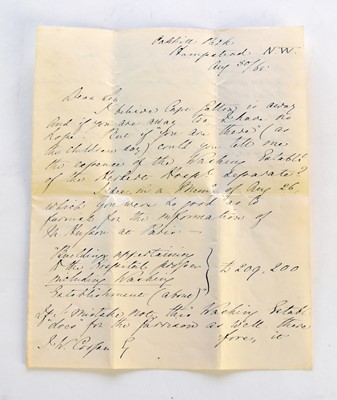 Oakhill Park
Hampstead N.W.
Aug 30/65
Dear Sir
I believe Capt Galton is away
And if you are away too I have no
hope. But if you are there (as
the children say) could you tell me
the expence of the Washing Establt
of the Herbert Hospl separate?
I see, in a Minute of Aug 26
which you were so good as to
furnish for the information of
at Paris
"Buildings appertaining
to the Hospital proper
including Washing
Establishment (above)"
£209,200
If I mistake not, this Washing Establt
does for the Garrison as well. there
fore, it
J.